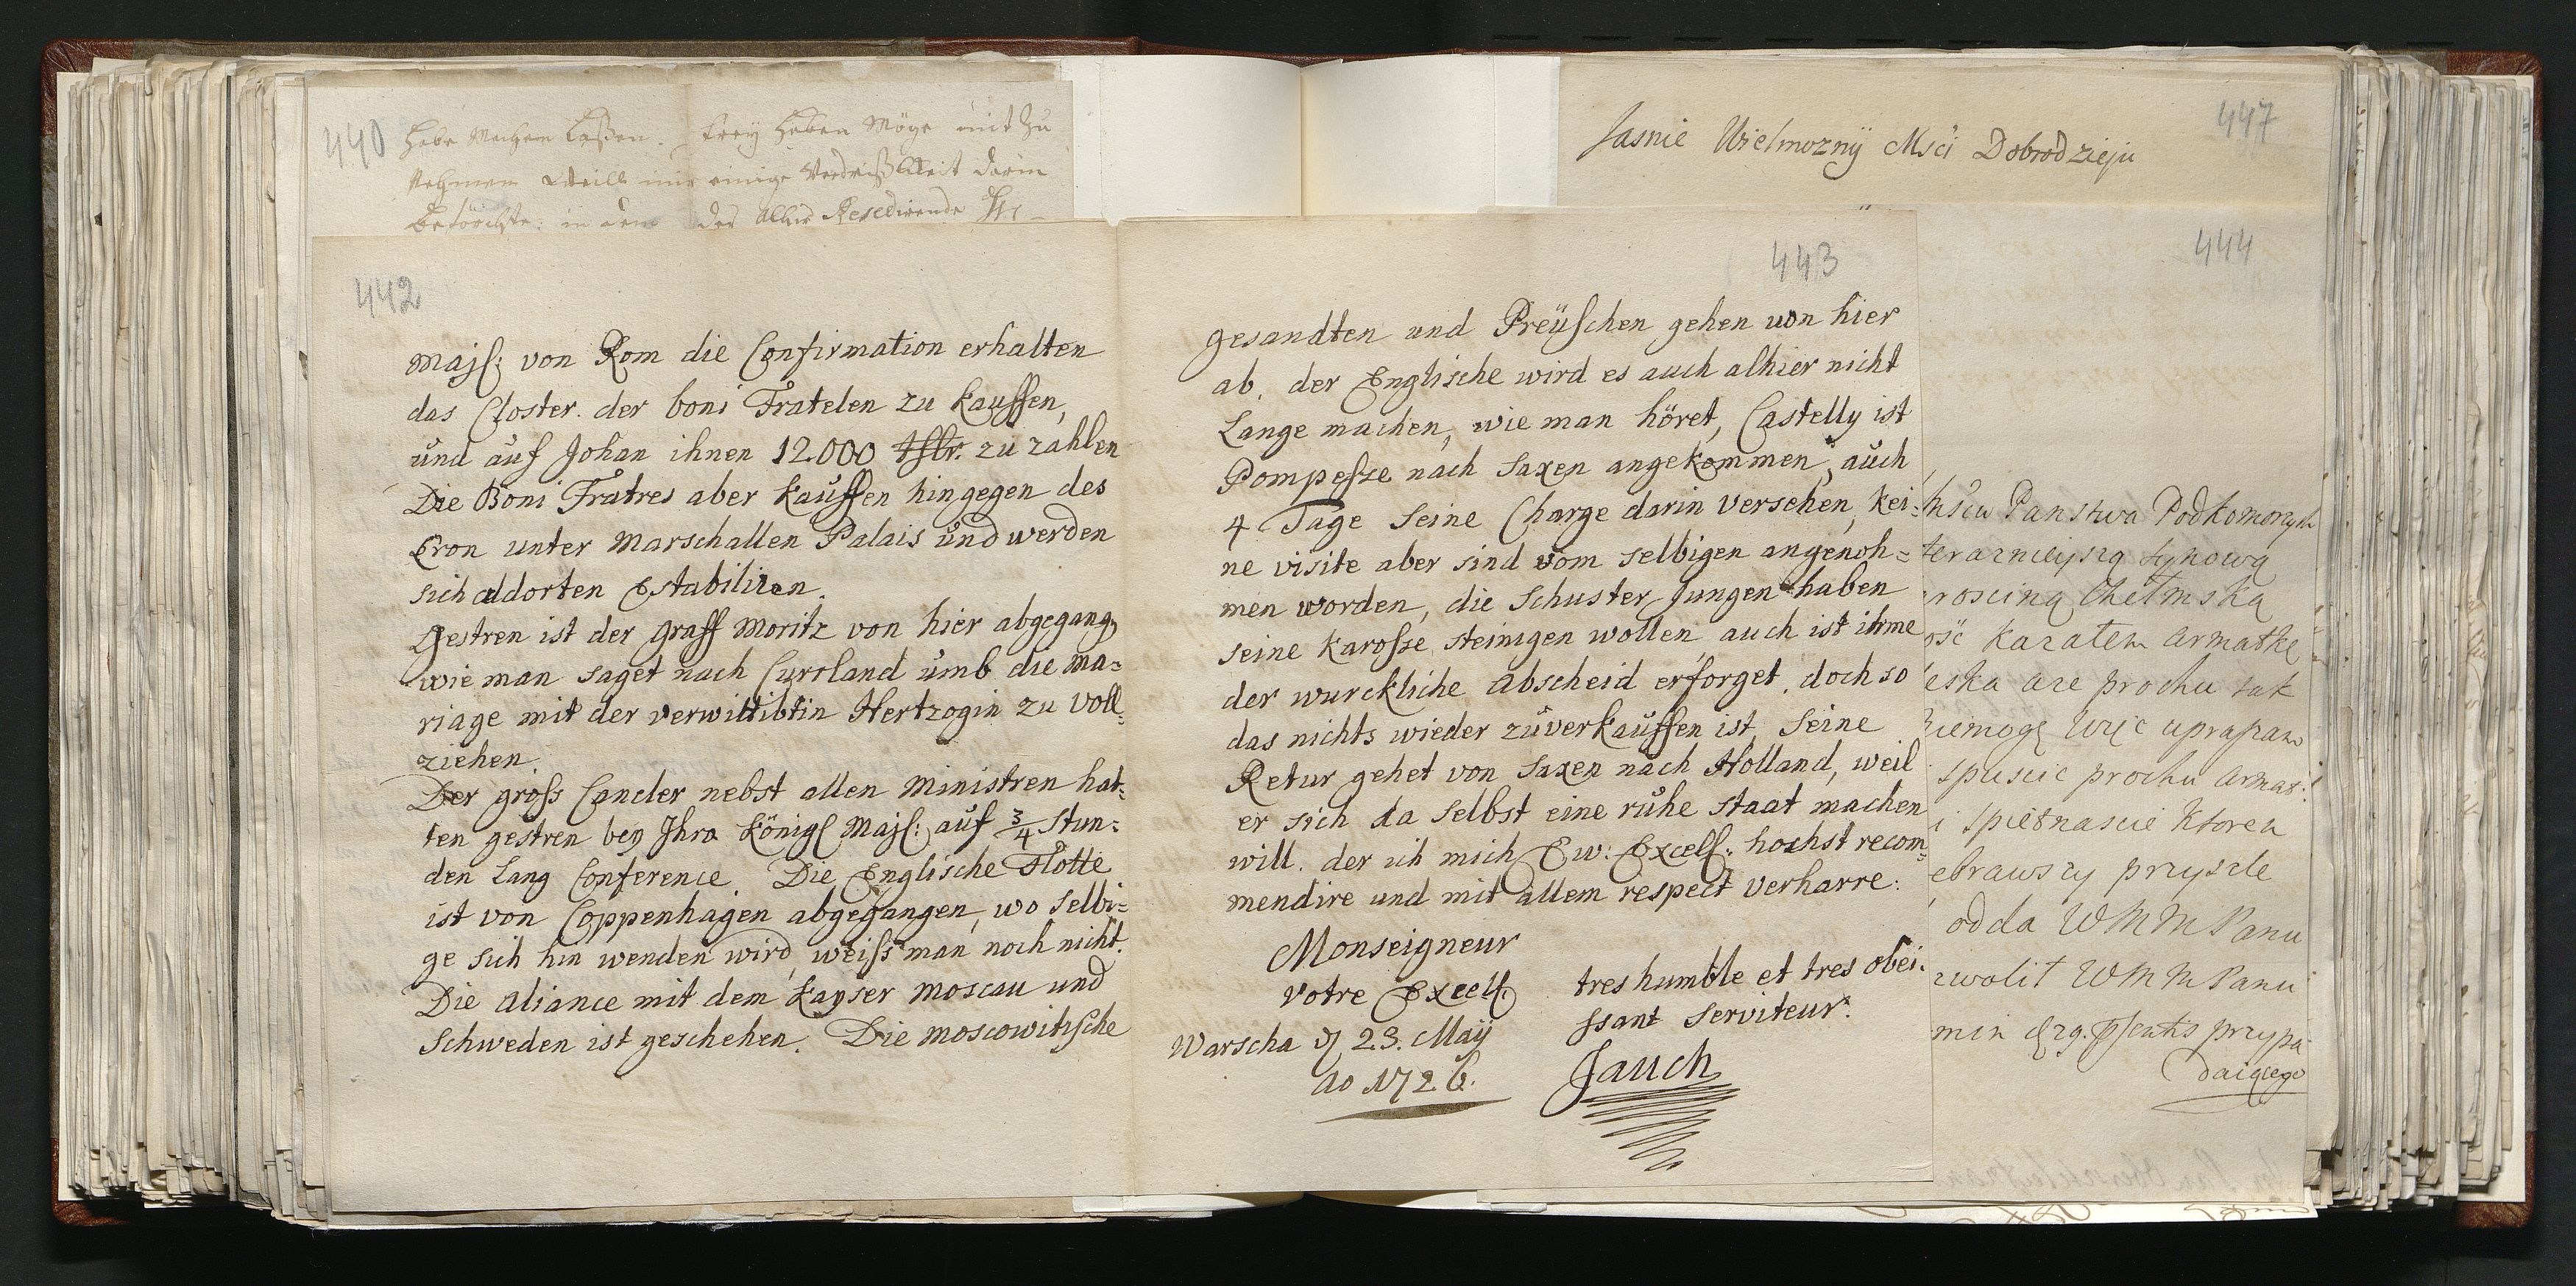 440
habe Machen laßen. frey haben Möge mit zu
nehmen Weill mir einige Verdrißlikeit darin
befürchte: in dem der allhier Resedirende
442
Majs: von Rom die Confirmation erhalten
das Closter. der boni Fratelen zu kauffen,
und auf Johan ihnen 12000 zu zahlen
Die Boni Fratres aber kauffen hingegen des
Cron unter Marschallen Palais und werden
sich aldorten Estabiliren.
Gestren ist der graff Moritz von hier abgegang,
wie man saget nach Curland umb die Ma=
riage mit der verwittibtin Hertzogin zu voll=
ziehen.
Der gross Cancler nebst allen Ministren hat=
ten gestren bey Ihro Königl Majs: auf 3/4 Stun=
den Lang Conference. Die Englische Flotte
ist von Coppenhagen abgegangen, wo selbi=
ge sich hin wenden wird, weiss man noch nicht.
Die aliance mit dem Kayser Moscau und
Schweden ist geschehen. Die Moscowitische
443
gesandten und Preüschen gehen von hier
ab. der Englische wird es auch alhier nicht
Lange machen, wie man höret, Castelly ist
Pompesze nach Saxen angekommen, auch
4 Tage seine Charge darin versehen, kei=
ne visite aber sind vom selbigen angenoh=
men worden, die Schuster Jungen haben
seine Karosse steinigen wollen, auch ist ihme
der wurckliche Abscheid erforget. doch so
das nichts wieder zuverkauffen ist, Seine
Retur gehet von Saxen nach Holland, weil
er sich da selbst eine ruhe staat machen
will. der ich mich Ew: Excell: hochst recom=
mendire und mit allem respect verharre:
Monseigneur
votre Excell.
tres humble et tres obei.
ssant Serviteur.
Warscha d 23. Maij
Ao 1726.
Jauch
447
Jasnie Wielmoznij Msci Dobrodzieju
444
Panstwa Podkomorzych
synową
Chełmską
kazałem armatkę
ale prochu tak
niemogę więc upraszam
spuscic prochu armat:
spietnascie ktoren
ebrawszy przysle
odda WMMPanu
zwolił WMMPanu
przypa
daiącego